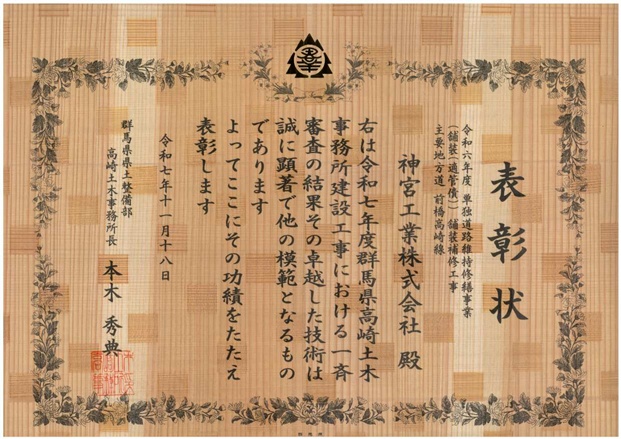 表彰状
令和六年度 単独道路維持修繕事業
(舗装(適管債)) 舗装補修工事
主要地方道 前橋高崎線
神宮工業株式会社 殿
右は令和七年度群馬県高崎土木
事務所建設工事における一斉
審査の結果その卓越した技術は
誠に顕著で他の模範となるもの
であります
よってここにその功績をたたえ
表彰します
令和七年十一月十八日
群馬県県土整備部
高崎土木事務所長 本木 秀典